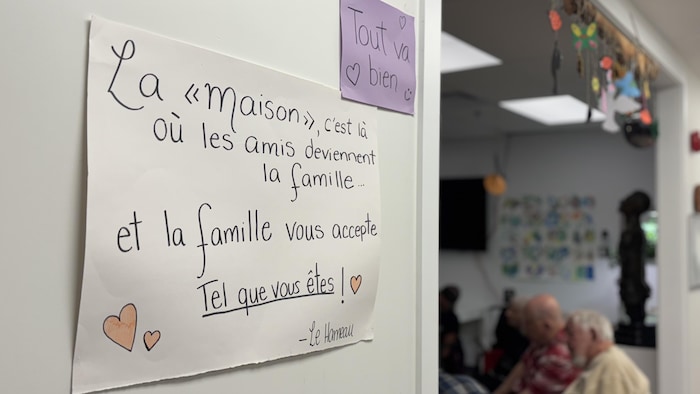 La «maison», c'est là
où les amis deviennent
la famille...
et la famille vous accepte
Tel que vous êtes !
-Le Hameau
Tout va
bien